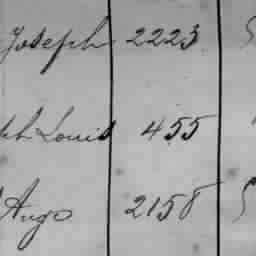 Joseph 2223
Louis 455
Aug 2158